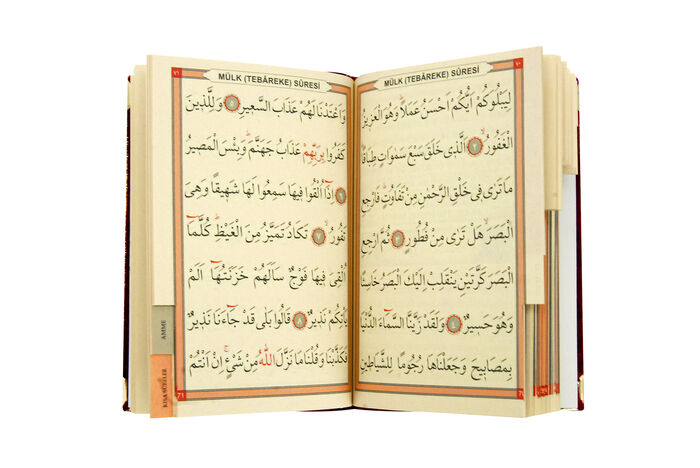 ٧٠
MÜLK (TEBÂREKE) SÛRESİ
لِيَبْلُوَكُمْ اَيُّكُمْ اَحْسَنُ عَمَلًاۜ وَهُوَ الْعَزِيزُ
الْغَفُورُۙ ﴿٢﴾ اَلَّذِى خَلَقَ سَبْعَ سَمٰوَاتٍ طِبَاقًاۜ
مَا تَرٰى فِى خَلْقِ الرَّحْمٰنِ مِنْ تَفَاوُتٍۜ فَارْجِعِ
الْبَصَرَۙ هَلْ تَرٰى مِنْ فُطُورٍ ﴿٣﴾ ثُمَّ ارْجِعِ
الْبَصَرَ كَرَّتَيْنِ يَنْقَلِبْ اِلَيْكَ الْبَصَرُ خَاسِئًا
وَهُوَ حَسِيرٌ ﴿٤﴾ وَلَقَدْ زَيَّنَّا السَّمَٓاءَ الدُّنْيَا
بِمَصَابِيحَ وَجَعَلْنَاهَا رُجُومًا لِلشَّيَاطِينِ
٧١
MÜLK (TEBÂREKE) SÛRESİ
وَاَعْتَدْنَا لَهُمْ عَذَابَ السَّعِيرِ ﴿٥﴾ وَلِلَّذِينَ
كَفَرُوا بِرَبِّهِمْ عَذَابُ جَهَنَّمَۜ وَبِئْسَ الْمَصِيرُ
﴿٦﴾ اِذَٓا اُلْقُوا فِيهَا سَمِعُوا لَهَا شَهِيقًا وَهِىَ
تَفُورُۙ ﴿٧﴾ تَكَادُ تَمَيَّزُ مِنَ الْغَيْظِۜ كُلَّمَٓا
اُلْقِىَ فِيهَا فَوْجٌ سَاَلَهُمْ خَزَنَتُهَٓا اَلَمْ
يَأْتِكُمْ نَذِيرٌ ﴿٨﴾ قَالُوا بَلٰى قَدْ جَٓاءَنَا نَذِيرٌ
فَكَذَّبْنَا وَقُلْنَا مَا نَزَّلَ اللّٰهُ مِنْ شَىْءٍۚ اِنْ اَنْتُمْ
٧١
AMME
KISA SÛRELER